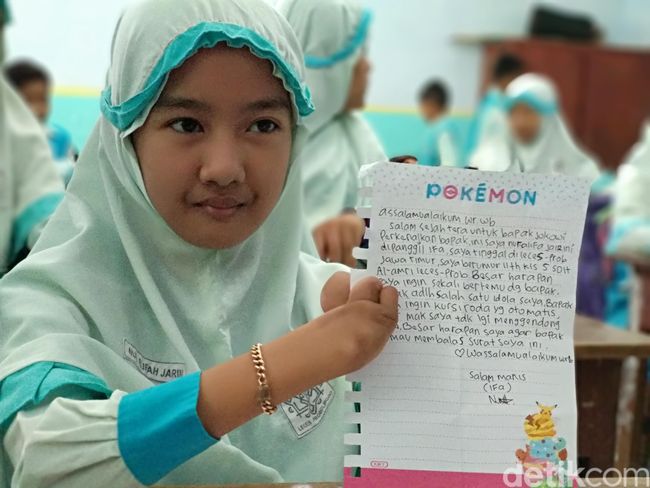 POKÉMON
assalamualaikum wr.wb
salam sejahtera untuk bapak jokowi
Perkenalkan bapak ini saya nurlifa Jarini
dipanggil ifa. saya tinggal di leces-Prob
Jawa timur, saya berumur 11th kls 5 SDIT
Al-amri leces-Prob. Besar harapan
saya ingin sekali bertemu dg bapak.
adlh salah satu idola saya. Bapak
ingin kursi roda yg otomatis.
mak saya tdk lgi menggendong
. Besar harapan saya agar bapak
mau membalas surat saya ini.
♡ Wassalamualaikum wr.wb
salam manis
(IFa)
FAH JARI
detikcom